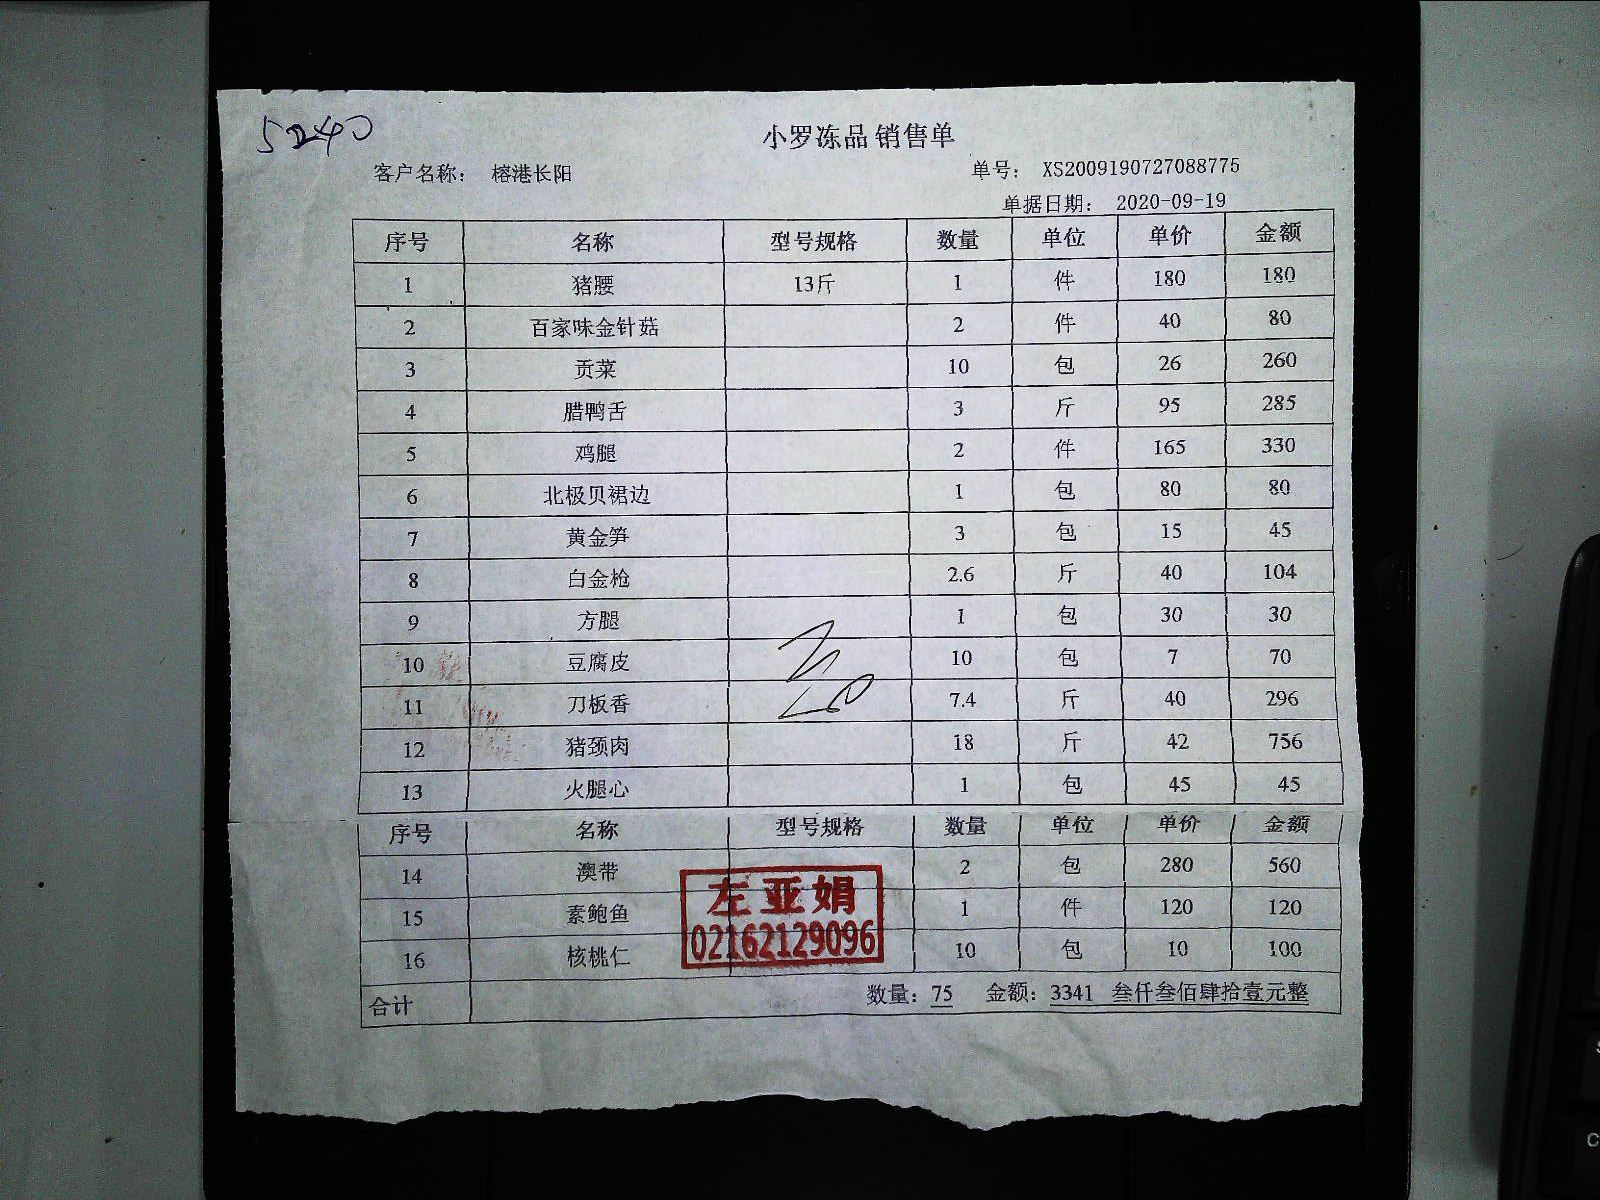 5240
小罗冻品 销售单
客户名称： 榕港长阳 单号： XS2009190727088775
单据日期： 2020-09-19
序号 名称 型号规格 数量 单位 单价 金额
1 猪腰 13斤 1 件 180 180
2 百家味金针菇 2 件 40 80
3 贡菜 10 包 26 260
4 腊鸭舌 3 斤 95 285
5 鸡腿 2 件 165 330
6 北极贝裙边 1 包 80 80
7 黄金笋 3 包 15 45
8 白金枪 2.6 斤 40 104
9 方腿 1 包 30 30
10 豆腐皮 10 包 7 70
11 刀板香 7.4 斤 40 296
12 猪颈肉 18 斤 42 756
13 火腿心 1 包 45 45
序号 名称 型号规格 数量 单位 单价 金额
14 澳带 2 包 280 560
15 素鲍鱼 1 件 120 120
16 核桃仁 10 包 10 100
左亚娟
02162129096
合计 数量：75 金额：3341 叁仟叁佰肆拾壹元整